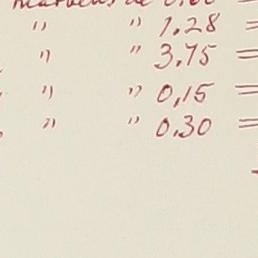 " " 1.28 =
" " 3.75 =
" " 0,15 =
" " 0.30 =